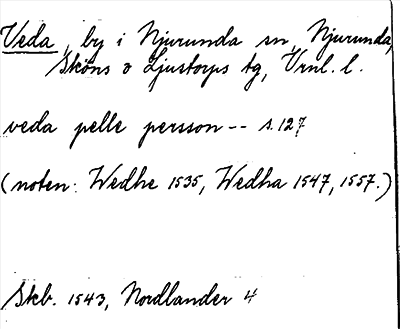 Veda, by i Njurunda sn, Njurunda,
Sköns o Ljustorps tg, Vrnl. l.
veda pelle persson -- s. 127
(noten: Wedhe 1535, Wedha 1547, 1557.)
Skb. 1543, Nordlander 4